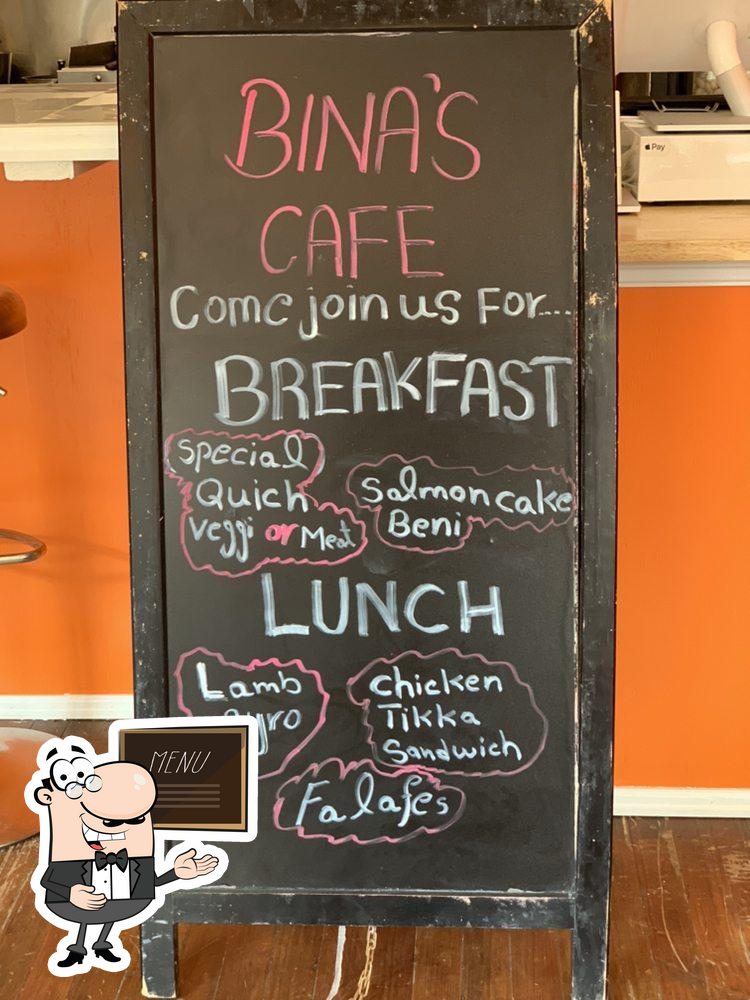 BINA'S
CAFE
Come join us For....
BREAKFAST
Special
Quich
veggi or Meat
Salmon cake
Beni
LUNCH
Lamb
gyro
chicken
Tikka
Sandwich
Falafes
MENU
Pay